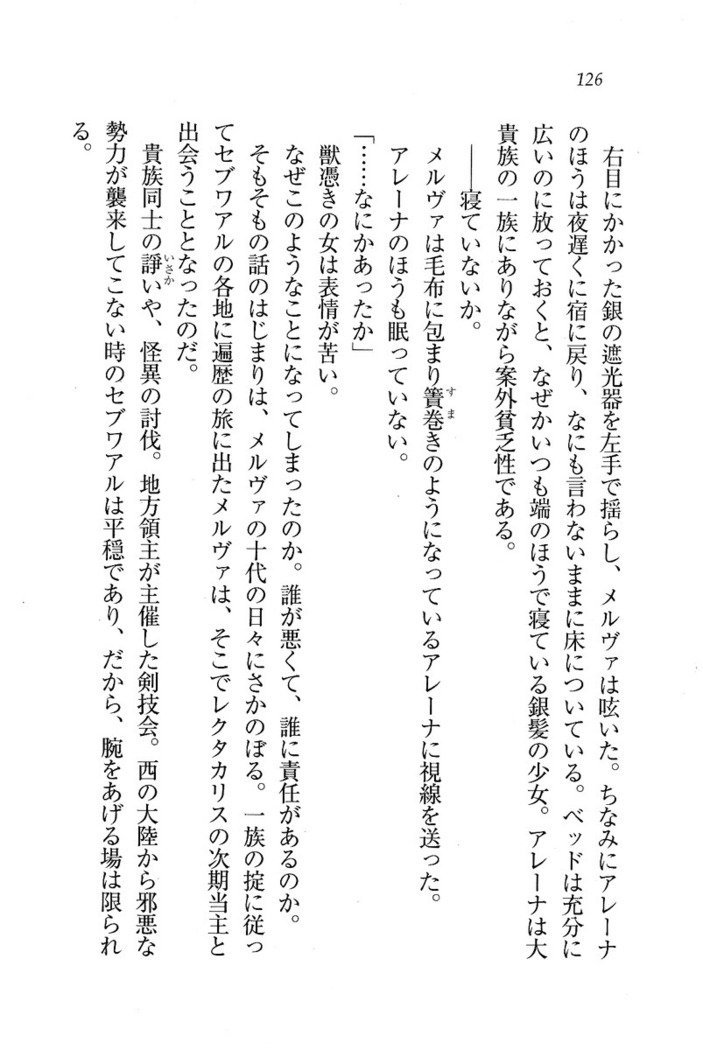 126
右目にかかった銀の遮光器を左手で揺らし、メルヴァは呟いた。ちなみにアレーナ
のほうは夜遅くに宿に戻り、なにも言わないままに床についている。ベッドは充分に
広いのに放っておくと、なぜかいつも端のほうで寝ている銀髪の少女。アレーナは大
貴族の一族にありながら案外貧乏性である。
――寝ていないか。
メルヴァは毛布に包まり簀巻きのようになっているアレーナに視線を送った。
すま
アレーナのほうも眠っていない。
「……なにかあったか」
獣憑きの女は表情が苦い。
なぜこのようなことになってしまったのか。誰が悪くて、誰に責任があるのか。
そもそもの話のはじまりは、メルヴァの十代の日々にさかのぼる。一族の掟に従っ
てセブワアルの各地に遍歴の旅に出たメルヴァは、そこでレクタカリスの次期当主と
出会うこととなったのだ。
貴族同士の諍いや、怪異の討伐。地方領主が主催した剣技会。西の大陸から邪悪な
いさか
勢力が襲来してこない時のセブワアルは平穏であり、だから、腕をあげる場は限られ
る。